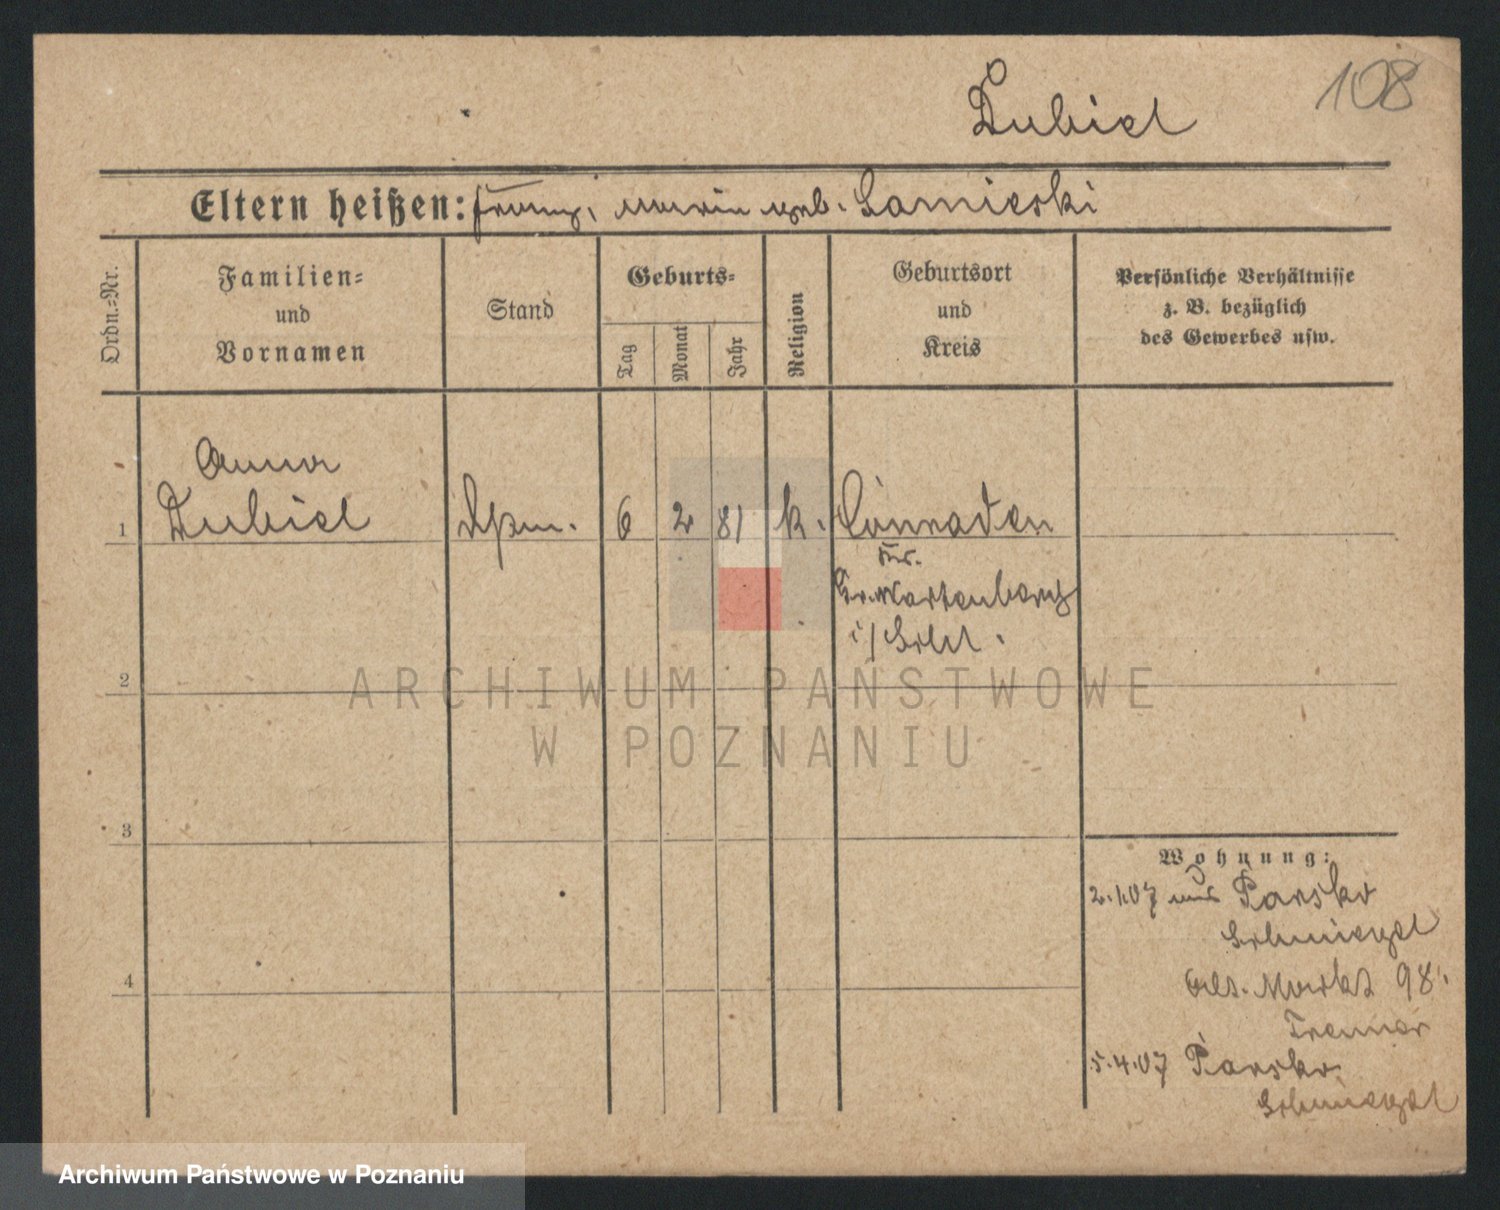 108
Dubiel
Eltern heißen: Franz, Marie geb. Lamieski
Ordn.-Nr.
Familien-
und
Vornamen
Stand
Geburts-
Tag
Monat
Jahr
Religion
Geburtsort
und
Kreis
Persönliche Verhältnisse
z. B. bezüglich
des Gewerbes usw.
Anna
1 Dubiel 6 2 81 k. Conraden
Kr.
Gr. Wartenberg
i/Schl.
2
ARCHIWUM PAŃSTWOWE
W POZNANIU
3
Wohnung:
2.1.07 aus Parsko
Schmiegel
Alt. Markt 98
4
5.4.07 Parsko
Schmiegel
Archiwum Państwowe w Poznaniu